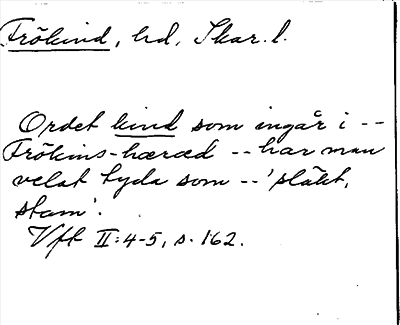 Frökind, hd, Skar. l.
Ordet kind som ingår i --
Frökins-hæræd -- har man
velat tyda som -- 'släkt,
stam'.
Vft II:4-5, s. 162.